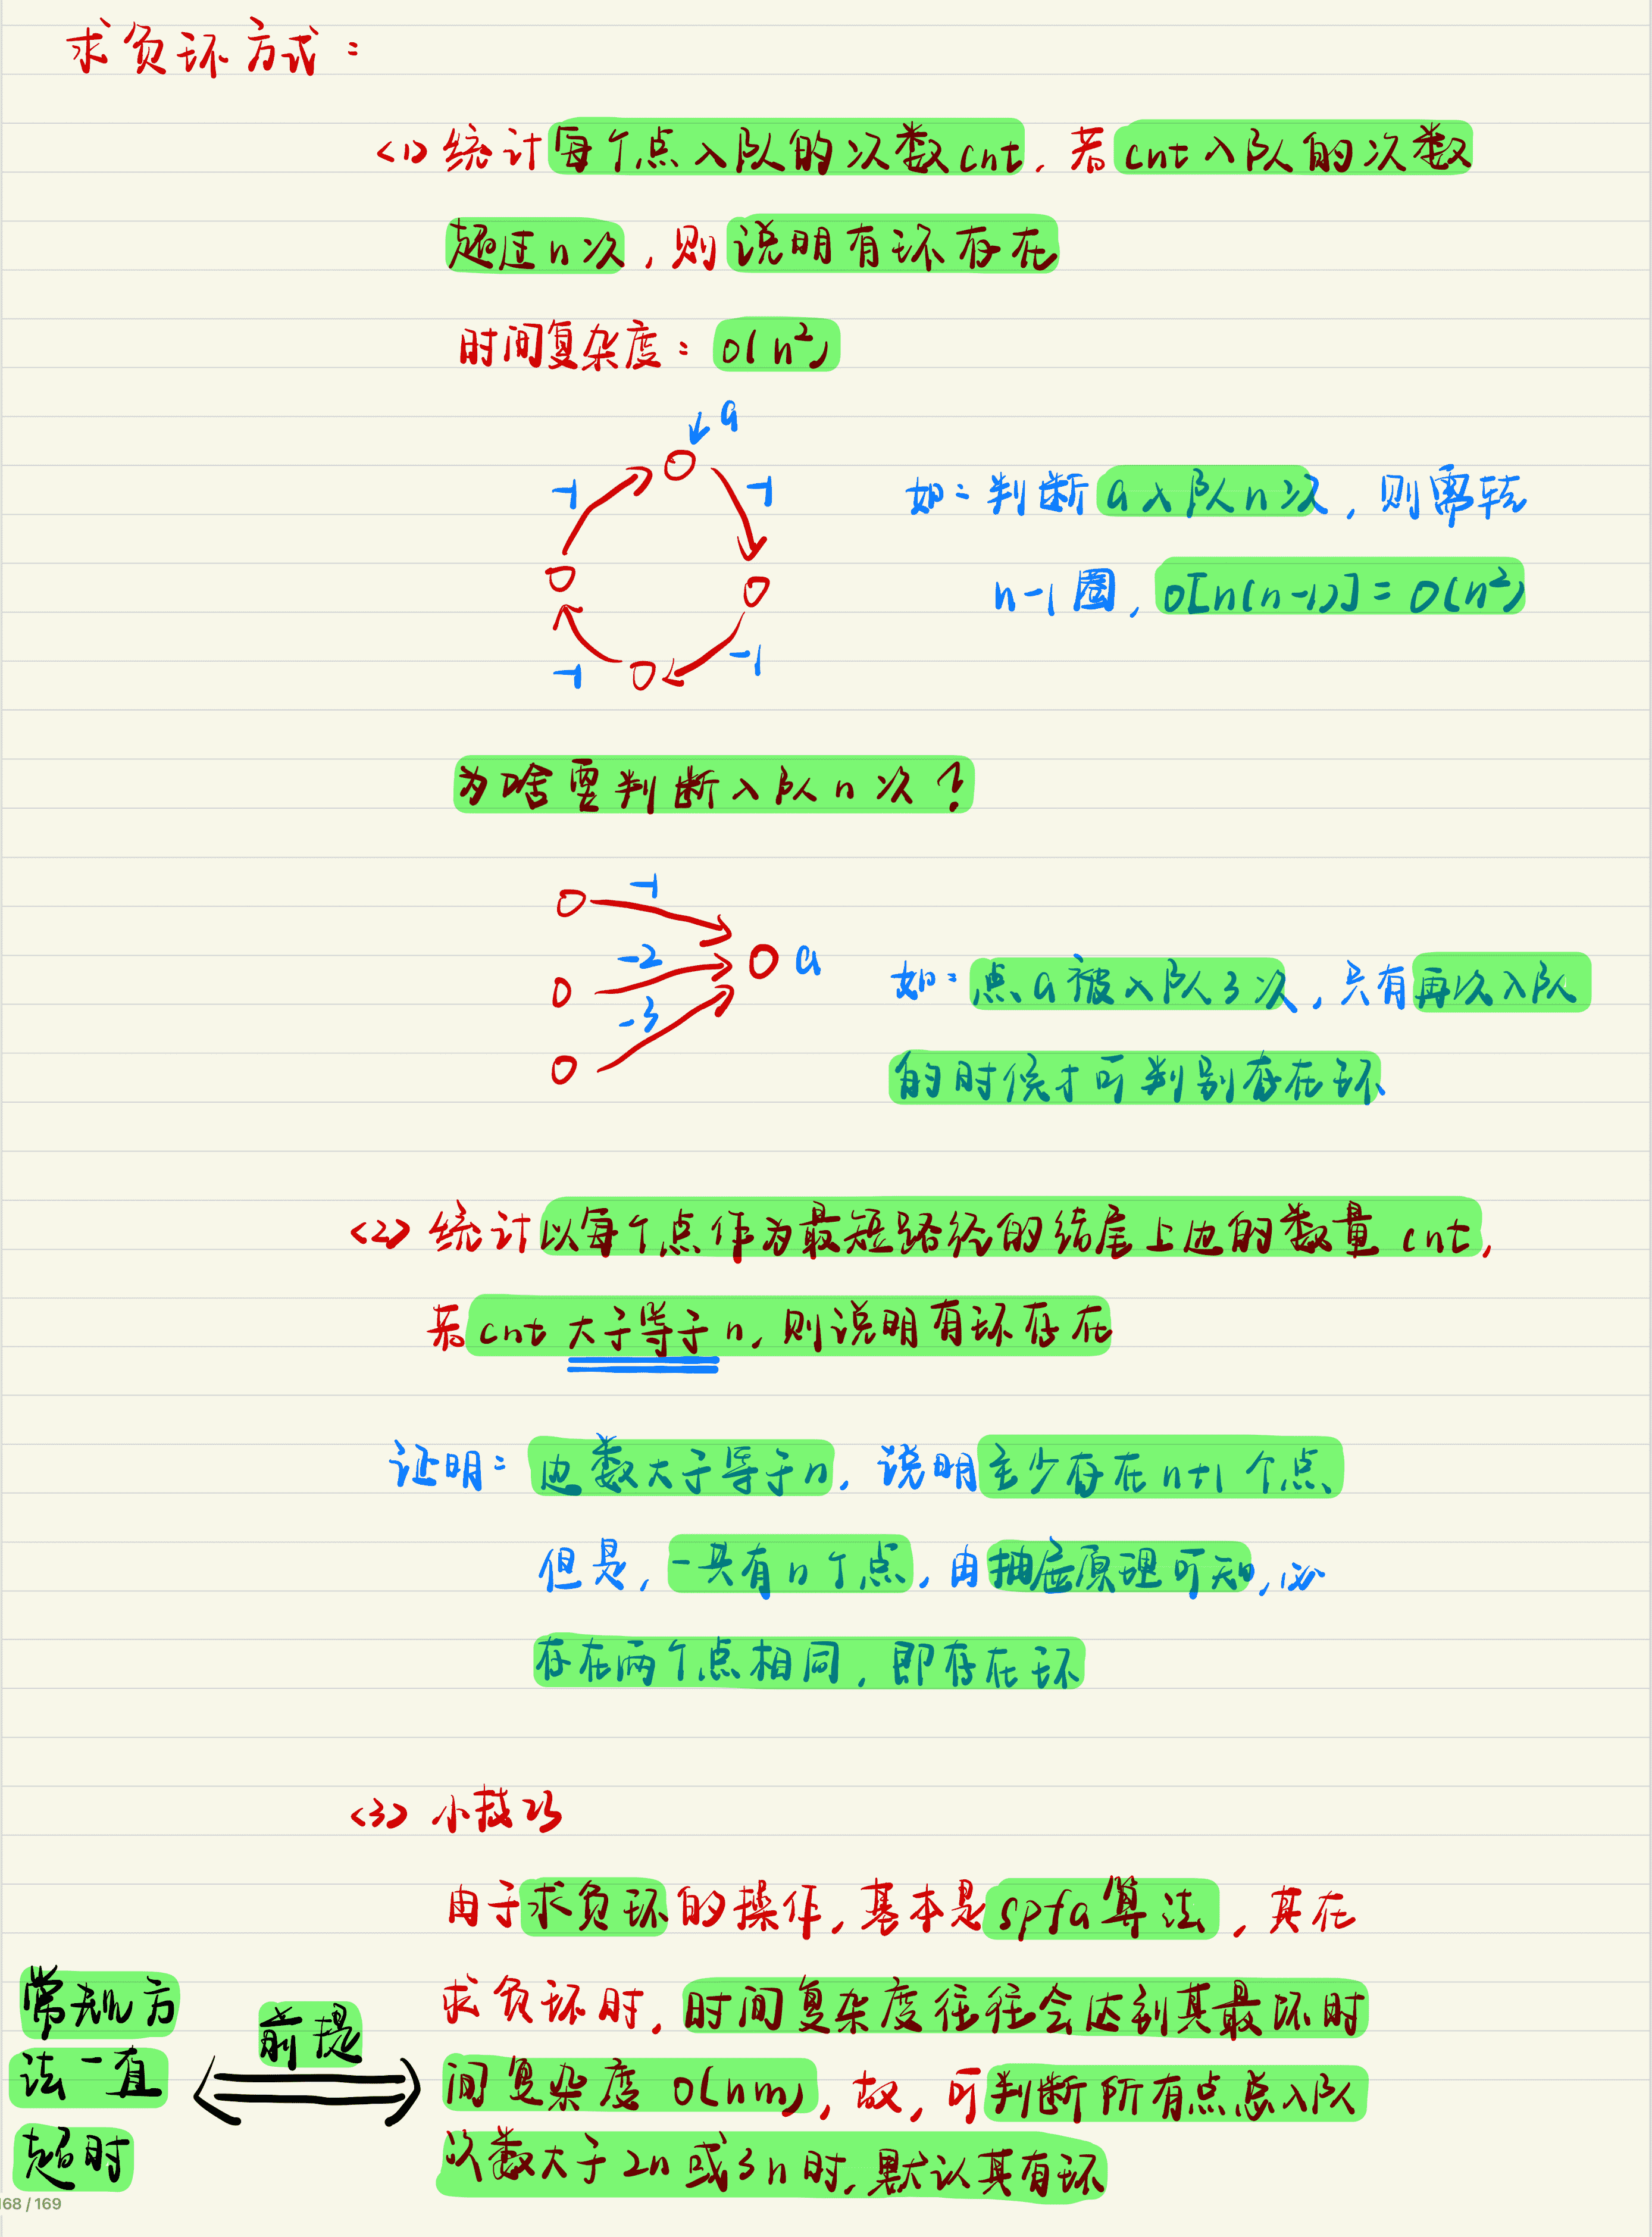 求负环方式：
<1> 统计每个点入队的次数cnt，若cnt入队的次数
超过n次，则说明有环存在
时间复杂度：O(n²)
a
-1
-1
-1
-1
如：判断a入队n次，则需转
n-1圈，O[n(n-1)]=O(n²)
为啥要判断入队n次？
-1
-2
-3
a
如：点a被入队3次，只有再次入队
的时候才可判别存在环
<2> 统计以每个点作为最短路径的结尾上边的数量cnt，
若cnt大于等于n，则说明有环存在
证明：边数大于等于n，说明至少存在n+1个点
但是，一共有n个点，由抽屉原理可知，必
存在两个点相同，即存在环
<3> 小技巧
由于求负环的操作，基本是spfa算法，其在
求负环时，时间复杂度往往会达到其最坏时
间复杂度O(nm)，故，可判断所有点总入队
次数大于2n或3n时，默认其有环
常规方
法一直
超时
前提
168 / 169